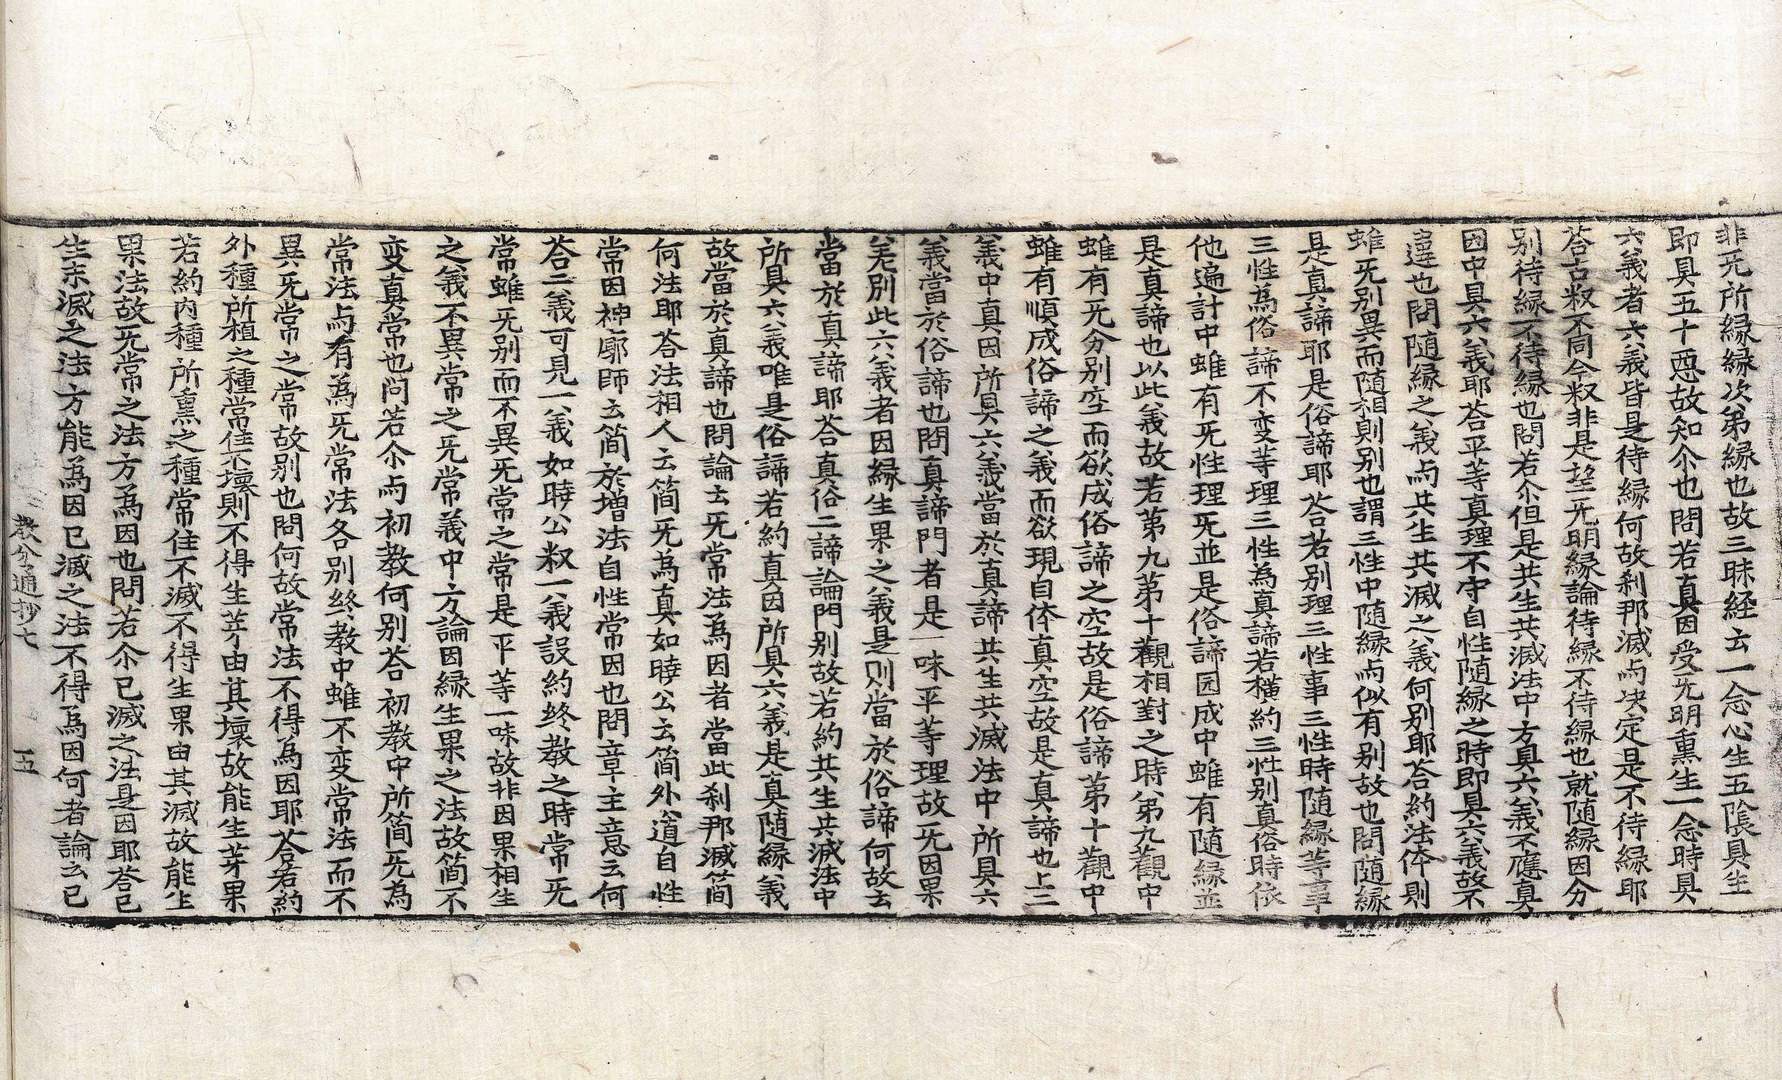 非旡所縁縁次苐縁也故三昧経云一念心生五隂具生
即具五十惡故知尒也問若真因受旡明熏生一念時具
六義者六義皆是待縁何故刹那滅与决定是不待縁耶
荅古釈不同今釈非是望旡明縁論待縁不待縁也就随縁因分
别待縁不待縁也問若尒但是共生共滅法中方具六義不應真
因中具六義耶荅平等真理不守自性随縁之時即具六義故不
違也問随縁之義与共生共滅之義何别耶荅約法体則
雖旡别異而随相則别也謂三性中随縁与似有别故也問随縁
是真諦耶是俗諦耶荅若别理三性事三性時随縁等事
三性為俗諦不变等理三性為真諦若横約三性别真俗時依
他遍計中雖有旡性理旡並是俗諦囩成中雖有随縁並
是真諦也以此義故若苐九苐十觀相對之時苐九觀中
雖有旡分别空而欲成俗諦之空故是俗諦苐十觀中
雖有順成俗諦之義而欲現自体真空故是真諦也上二
義中真因所具六義當於真諦共生共滅法中所具六
義當於俗諦也問真諦門者是一味平等理故旡因果
羌别此六義者因縁生果之義是則當於俗諦何故云
當於真諦耶荅真俗二諦論門别故若約共生共滅法中
所具六義唯是俗諦若約真因所具六義是真随縁義
故當於真諦也問論云旡常法為因者當此刹那滅簡
何法耶荅法相人云簡旡為真如暁公云簡外道自性
常因神廓師云簡於増法自性常因也問章主意云何
荅二義可見一義如暁公釈一義設約終教之時常旡
常雖旡别而不異旡常之常是平等一味故非因果相生
之義不異常之旡常義中方論因縁生果之法故簡不
变真常也问若尒与初教何别荅初教中所簡旡為
常法与有為旡常法各别終教中雖不变常法而不
異旡常之常故别也問何故常法不得為因耶荅若約
外種所植之種常住不壊則不得生芽由其壊故能生芽果
若約内種所熏之種常住不滅不得生果由其滅故能生
果法故旡常之法方為因也問若尒已滅之法是因耶荅已
生未滅之法方能為因已滅之法不得為因何者論云已
教分通抄七　五